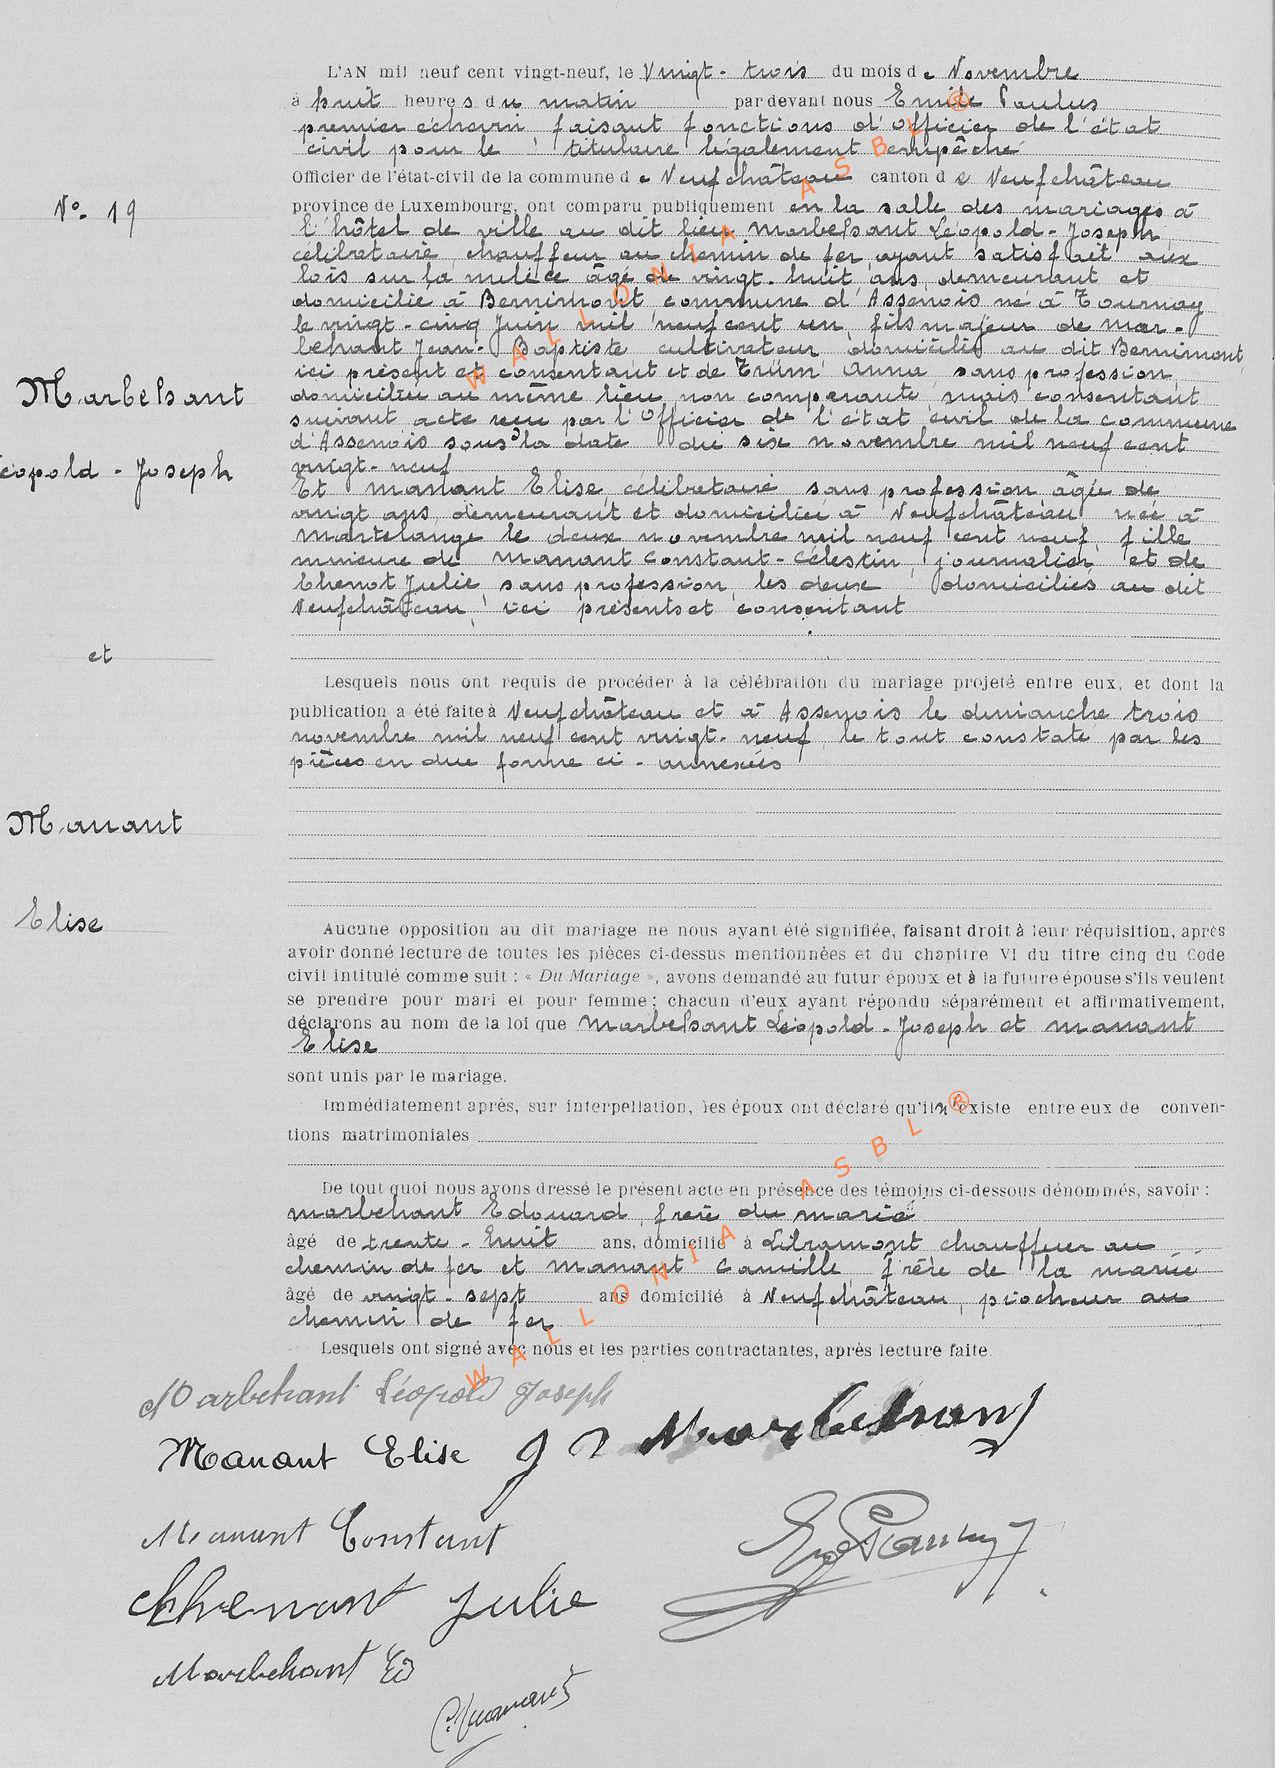 L'AN mil neuf cent vingt-neuf, le Vingt-trois du mois de Novembre
à huit heures du matin par devant nous Emile Paulus
premier échevin faisant fonctions d'officier de l'état
civil pour le titulaire légalement empêché
Officier de l'état-civil de la commune de Neufchâteau canton de Neufchâteau
N° 19
province de Luxembourg, ont comparu publiquement en la salle des mariages à
l'hôtel de ville au dit lieu Marbehant Léopold-Joseph,
célibataire, chauffeur au chemin de fer, ayant satisfait aux
lois sur la milice âgé de vingt-huit ans, demeurant et
domicilié à Bernimont commune d'Assenois né à Tournay
le vingt-cinq Juin mil neuf cent un, fils majeur de Mar-
behant Jean-Baptiste cultivateur domicilié au dit Bernimont,
ici présent et consentant et de Trüm Anna, sans profession,
Marbehant
domiciliée au même lieu, non comparante mais consentant
suivant acte reçu par l'Officier de l'état civil de la commune
d'Assenois sous la date du six novembre mil neuf cent
Léopold-Joseph
vingt-neuf
Et Manant Elise, célibataire sans profession âgée de
vingt ans, demeurant et domiciliée à Neufchâteau née à
Martelange le deux novembre mil neuf cent neuf, fille
mineure de Manant Constant-Célestin, journalier et de
Chenot Julie, sans profession, les deux domiciliés au dit
Neufchâteau, ici présents et consentant
et
Lesquels nous ont requis de procéder à la célébration du mariage projeté entre eux, et dont la
publication a été faite à Neufchâteau et à Assenois le dimanche trois
novembre mil neuf cent vingt-neuf, le tout constaté par les
pièces en due forme ci-annexées
Manant
Elise
Aucune opposition au dit mariage ne nous ayant été signifiée, faisant droit à leur réquisition, après
avoir donné lecture de toutes les pièces ci-dessus mentionnées et du chapitre VI du titre cinq du Code
civil intitulé comme suit : « Du Mariage », avons demandé au futur époux et à la future épouse s'ils veulent
se prendre pour mari et pour femme ; chacun d'eux ayant répondu séparément et affirmativement,
déclarons au nom de la loi que Marbehant Léopold-Joseph et Manant
Elise
sont unis par le mariage.
Immédiatement après, sur interpellation, les époux ont déclaré qu'il n'existe entre eux de conven-
tions matrimoniales
De tout quoi nous avons dressé le présent acte en présence des témoins ci-dessous dénommés, savoir :
Marbehant Edouard, frère du marié
âgé de trente-huit ans, domicilié à Libramont chauffeur au
chemin de fer et Manant Camille, frère de la mariée
âgé de vingt-sept ans domicilié à Neufchâteau, piocheur au
chemin de fer
Lesquels ont signé avec nous et les parties contractantes, après lecture faite.
Marbehant Léopold Joseph
Manant Elise J Marbehant
Manant Constant
Em Paulus
Chenot Julie
Marbehant Ed
C. Manant
WALLONIA ASBL ®
WALLONIA ASBL ®